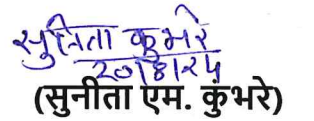 सुनिता कुभरे
20/8/24
(सुनीता एम. कुंभरे)